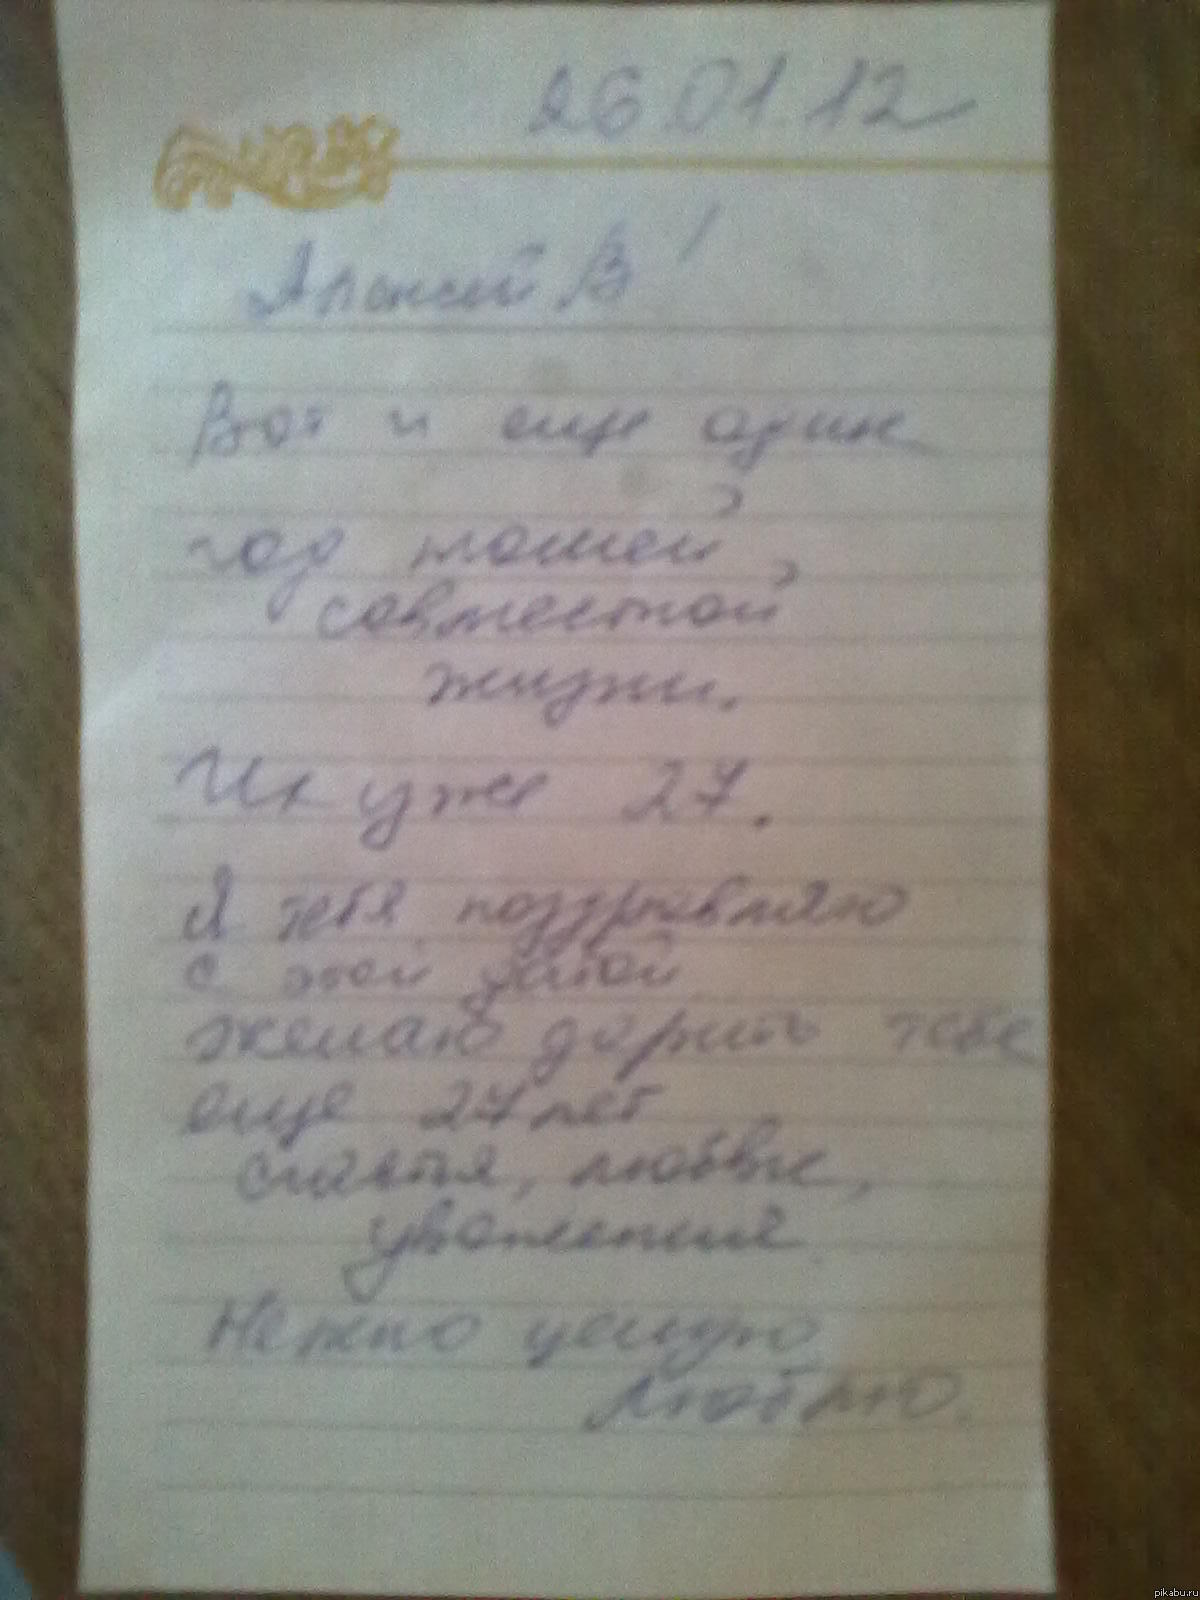 26.01.12
Алексей В!
Вот и еще один
год нашей
совместной
жизни.
Их уже 27.
Я тебя поздравляю
с этой датой
желаю дарить тебе
еще 27 лет
счастья, любви,
уважения.
Нежно целую
люблю.
pikabu.ru